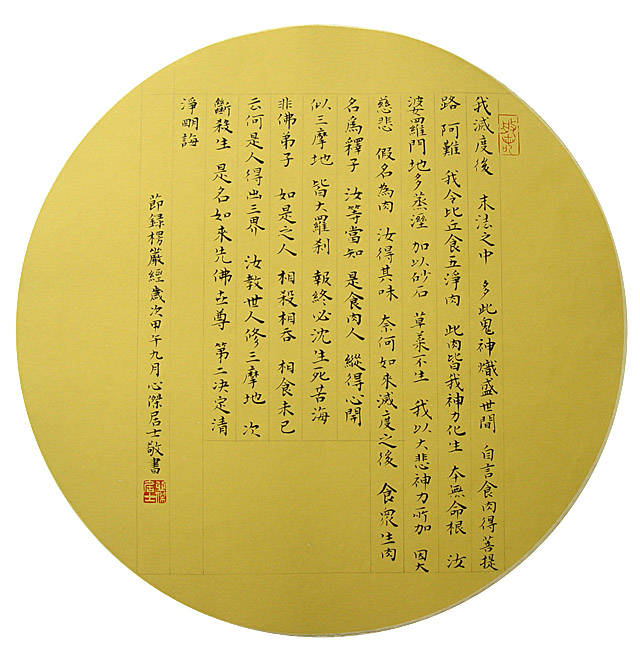 我滅度後 末法之中 多此鬼神熾盛世間 自言食肉得菩提
路 阿難 我令比丘食五淨肉 此肉皆我神力化生 本無命根 汝
婆羅門地多蒸溼 加以砂石 草菜不生 我以大悲神力所加 因大
慈悲 假名為肉 汝得其味 奈何如來滅度之後 食眾生肉
名為釋子 汝等當知 是食肉人 縱得心開
似三摩地 皆大羅剎 報終必沈生死苦海
非佛弟子 如是之人 相殺相吞 相食未已
云何是人得出三界 汝教世人修三摩地 次
斷殺生 是名如來先佛世尊 第二決定清
淨明誨
節錄楞嚴經歲次甲午九月心傑居士敬書